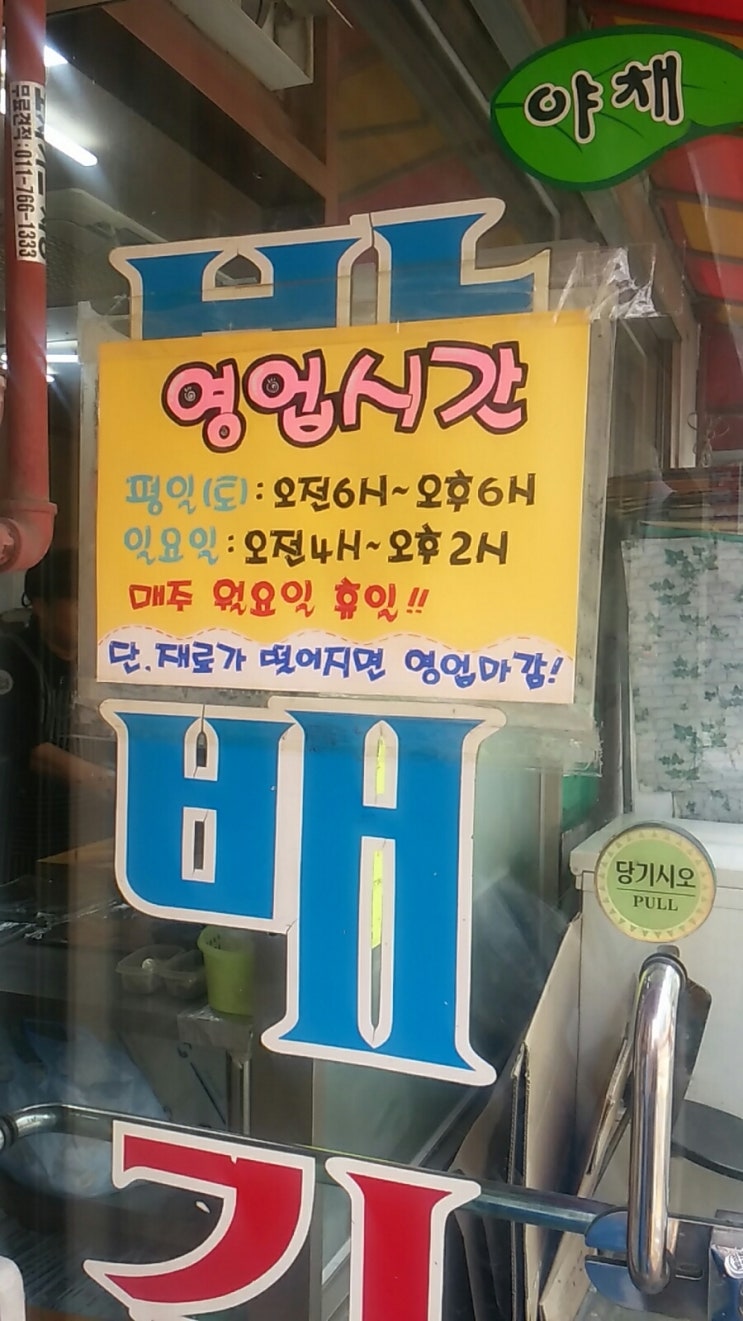 야채
무료견적:011-766-1333
영업시간
평일(토):오전6H~오후6H
일요일:오전4H~오후2H
매주 월요일 휴인!!
단.재료가 떨어지면 영업마감!
배
당기시오
PULL